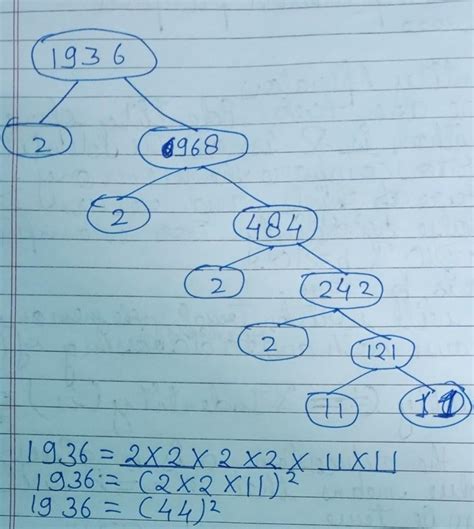 1936
2 968
2 484
2 242
2 121
11 11
1936 = 2×2×2×2×11×11
1936 = (2×2×11)²
1936 = (44)²